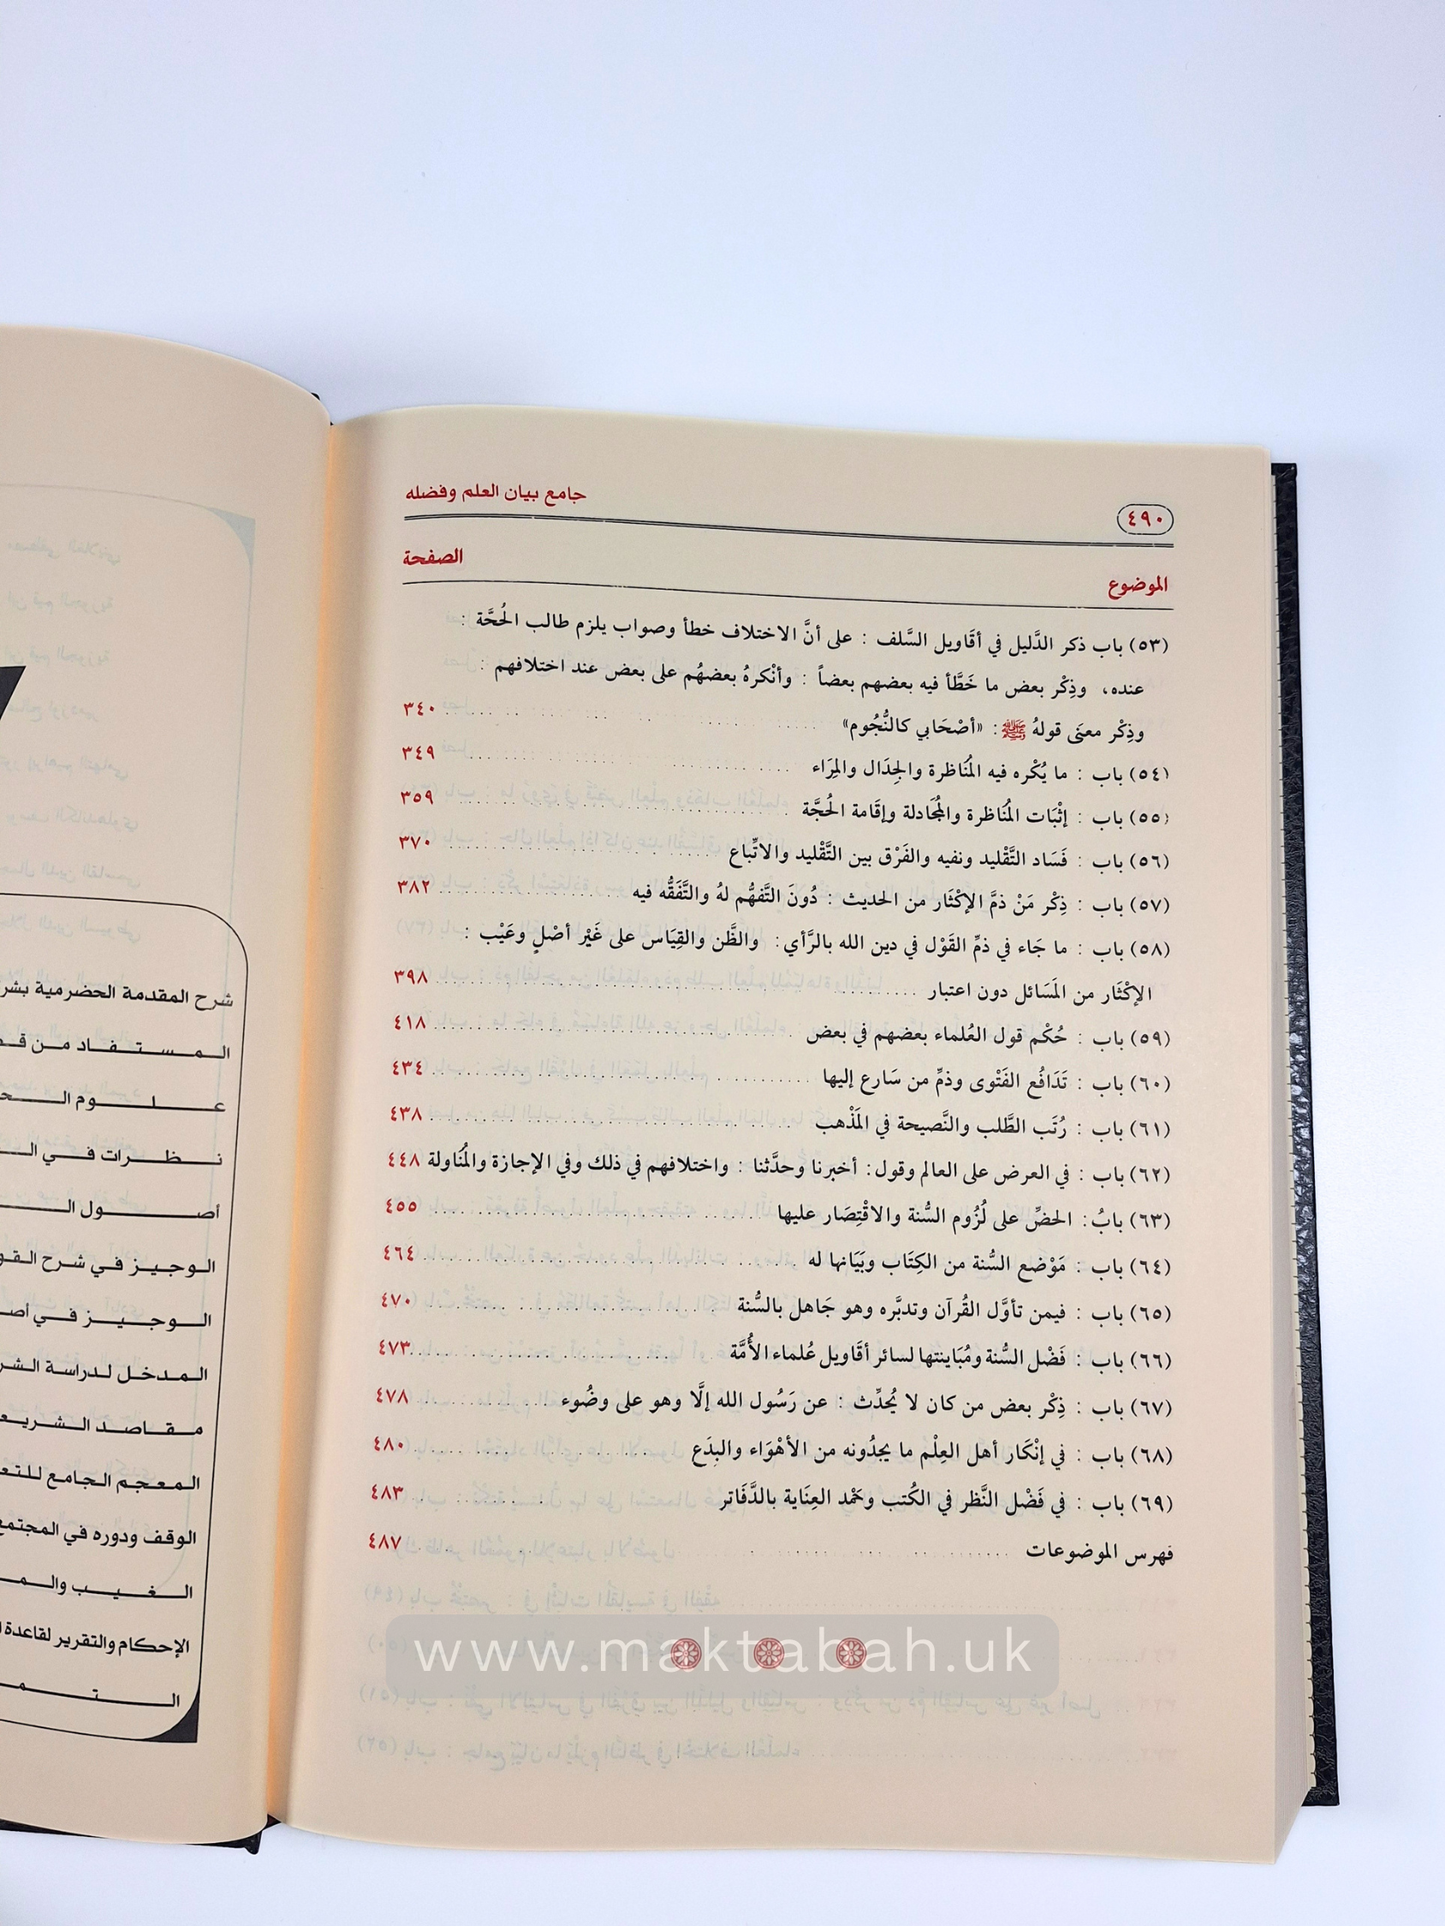 جامع بيان العلم وفضله
٤٩٠
الموضوع
الصفحة
(٥٣) باب ذكر الدَّليل في أقَاويل السَّلف : على أنَّ الاختلاف خطأ وصواب يلزم طالب الحُجَّة :
عنده، وذِكْر بعض ما خَطَّأ فيه بعضهم بعضاً : وأنْكرهُ بعضهُم على بعض عند اختلافهم :
وذِكْر معنَى قولهُ ﷺ : «أصْحَابي كالنُّجُوم» ٣٤٠
(٥٤) باب : ما يُكْره فيه المُنَاظرة والجِدَال والمِرَاء ٣٤٩
(٥٥) باب : إثْبَات المُنَاظرة والمُجَادلة وإقَامة الحُجَّة ٣٥٩
(٥٦) باب : فَسَاد التَّقْليد ونفيه والفَرْق بين التَّقْليد والاتِّباع ٣٧٠
(٥٧) باب : ذِكْر مَنْ ذمَّ الإكْثَار من الحديث : دُونَ التَّفهُّم لهُ والتَّفَقُّه فيه ٣٨٢
(٥٨) باب : ما جَاء في ذمِّ القَوْل في دين الله بالرَّأي: والظَّن والقِيَاس على غَيْر أصْلٍ وعَيْب :
الإكْثَار من المَسَائل دون اعتبار ٣٩٨
(٥٩) باب : حُكْم قول العُلماء بعضهم في بعض ٤١٨
(٦٠) باب : تَدَافُع الفَتْوى وذمِّ من سَارع إليها ٤٣٤
(٦١) باب : رُتَب الطَّلب والنَّصيحة في المَذْهب ٤٣٨
(٦٢) باب : في العرض على العالم وقول: أخبرنا وحدَّثنا : واختلافهم في ذلك وفي الإجازة والمُناولة ٤٤٨
(٦٣) بابُ: الحضِّ على لُزُوم السُّنة والاقْتِصَار عليها ٤٥٥
(٦٤) باب : مَوْضع السُّنة من الكِتَاب وبَيَانها له ٤٦٤
(٦٥) باب : فيمن تأوَّل القُرآن وتدبَّره وهو جَاهل بالسُّنة ٤٧٠
(٦٦) باب : فَضْل السُّنة ومُبَاينتها لسائر أقَاويل عُلماء الأُمَّة ٤٧٣
(٦٧) باب : ذِكْر بعض من كان لا يُحدِّث : عن رَسُول الله إلَّا وهو على وضُوء ٤٧٨
(٦٨) باب : في إنْكَار أهل العِلْم ما يجدُونه من الأهْوَاء والبِدَع ٤٨٠
(٦٩) باب : في فَضْل النَّظر في الكُتب وحَمْد العِنَاية بالدَّفَاتر ٤٨٣
فهرس الموضوعات ٤٨٧
www.maktabah.uk
شرح المقدمة الحضرمية
المستفاد من
علوم
نظرات في
أصول
الوجيز في شرح
الوجيز في
المدخل لدراسة
مقاصد
المعجم الجامع
الوقف ودوره في المجتمع
الغيب
الإحكام والتقرير لقاعدة